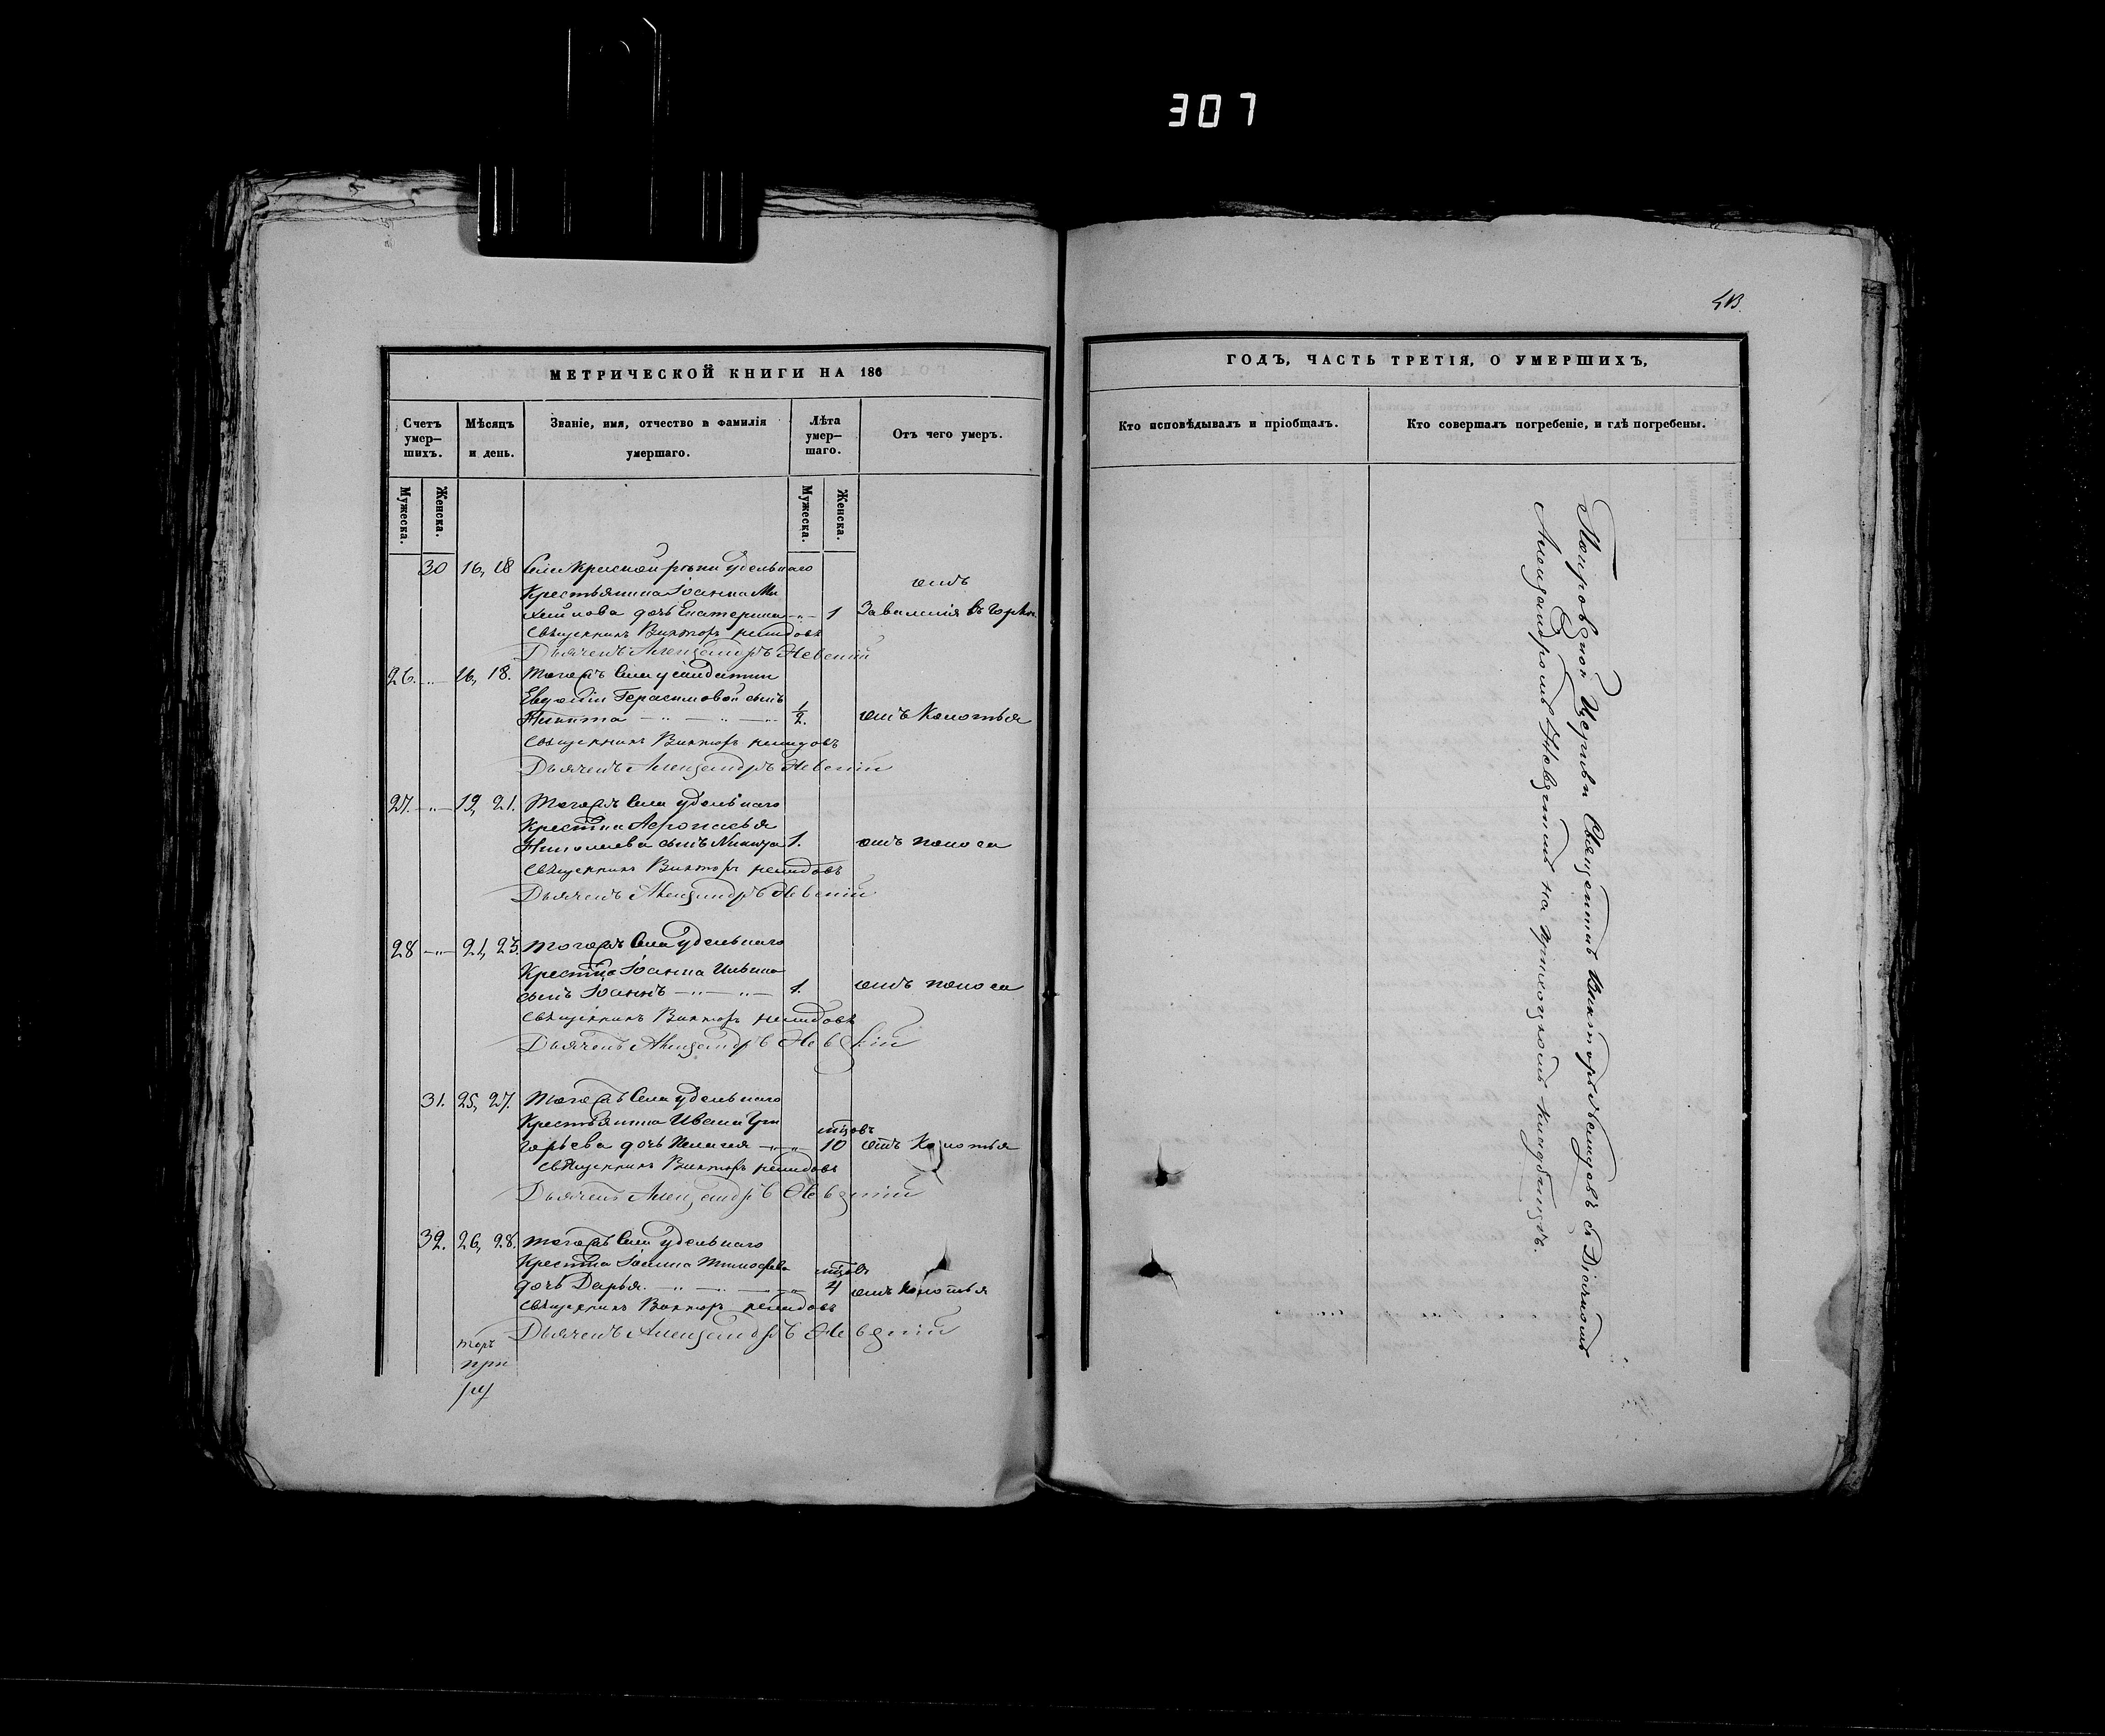 307
МЕТРИЧЕСКОЙ КНИГИ НА 186
Счетъ умер-шихъ.
Мѣсяцъ и день.
Званіе, имя, отчество и фамилія умершаго.
Лѣта умер-шаго.
Отъ чего умеръ.
Мужеска.
Женска.
Мужеска.
Женска.
30 16, 18 Села Красной рѣки удельнаго
отъ
Крестьянина Іоанна Ми
хайлова дочь Екатерина 1
Заваленія въ горлѣ
Священникъ Викторъ
Дьячекъ Александръ Невскій
26. 16, 18. Тогожъ села
Евдокіи Герасимовой сынъ
Никита 1/2. отъ Колотья
Священникъ Викторъ
Дьячекъ Александръ Невскій
27. 19, 21. Тогожъ села удельнаго
Крестьна
Николаева сынъ Никита 1. отъ поноса
Священникъ Викторъ
Дьячекъ Александръ Невскій
28 21, 23. Тогожъ села удельнаго
Крестьна Іоанна Ильина
сынъ Іоаннъ 1. отъ поноса
Священникъ Викторъ
Дьячекъ Александръ Невскій
31. 25, 27. Тогожъ села удельнаго
Крестьянина Ивана Гри
горьева дочь Пелагея мцовъ 10 отъ Колотья
Священникъ Викторъ
Дьячекъ Александръ Невскій
32. 26, 28. Тогожъ села удельнаго
Крестьна Іоанна Тимофеева мцовъ
дочь Дарья 4 отъ колотья
Священникъ Викторъ
Дьячекъ Александръ Невскій
ГОДЪ, ЧАСТЬ ТРЕТІЯ, О УМЕРШИХЪ,
Кто исповѣдывалъ и пріобщалъ.
Кто совершалъ погребеніе, и гдѣ погребены.
Покровской Церкви Священникъ Викторъ съ Дьячкомъ
Александромъ Невскимъ на приходскомъ кладбищѣ.